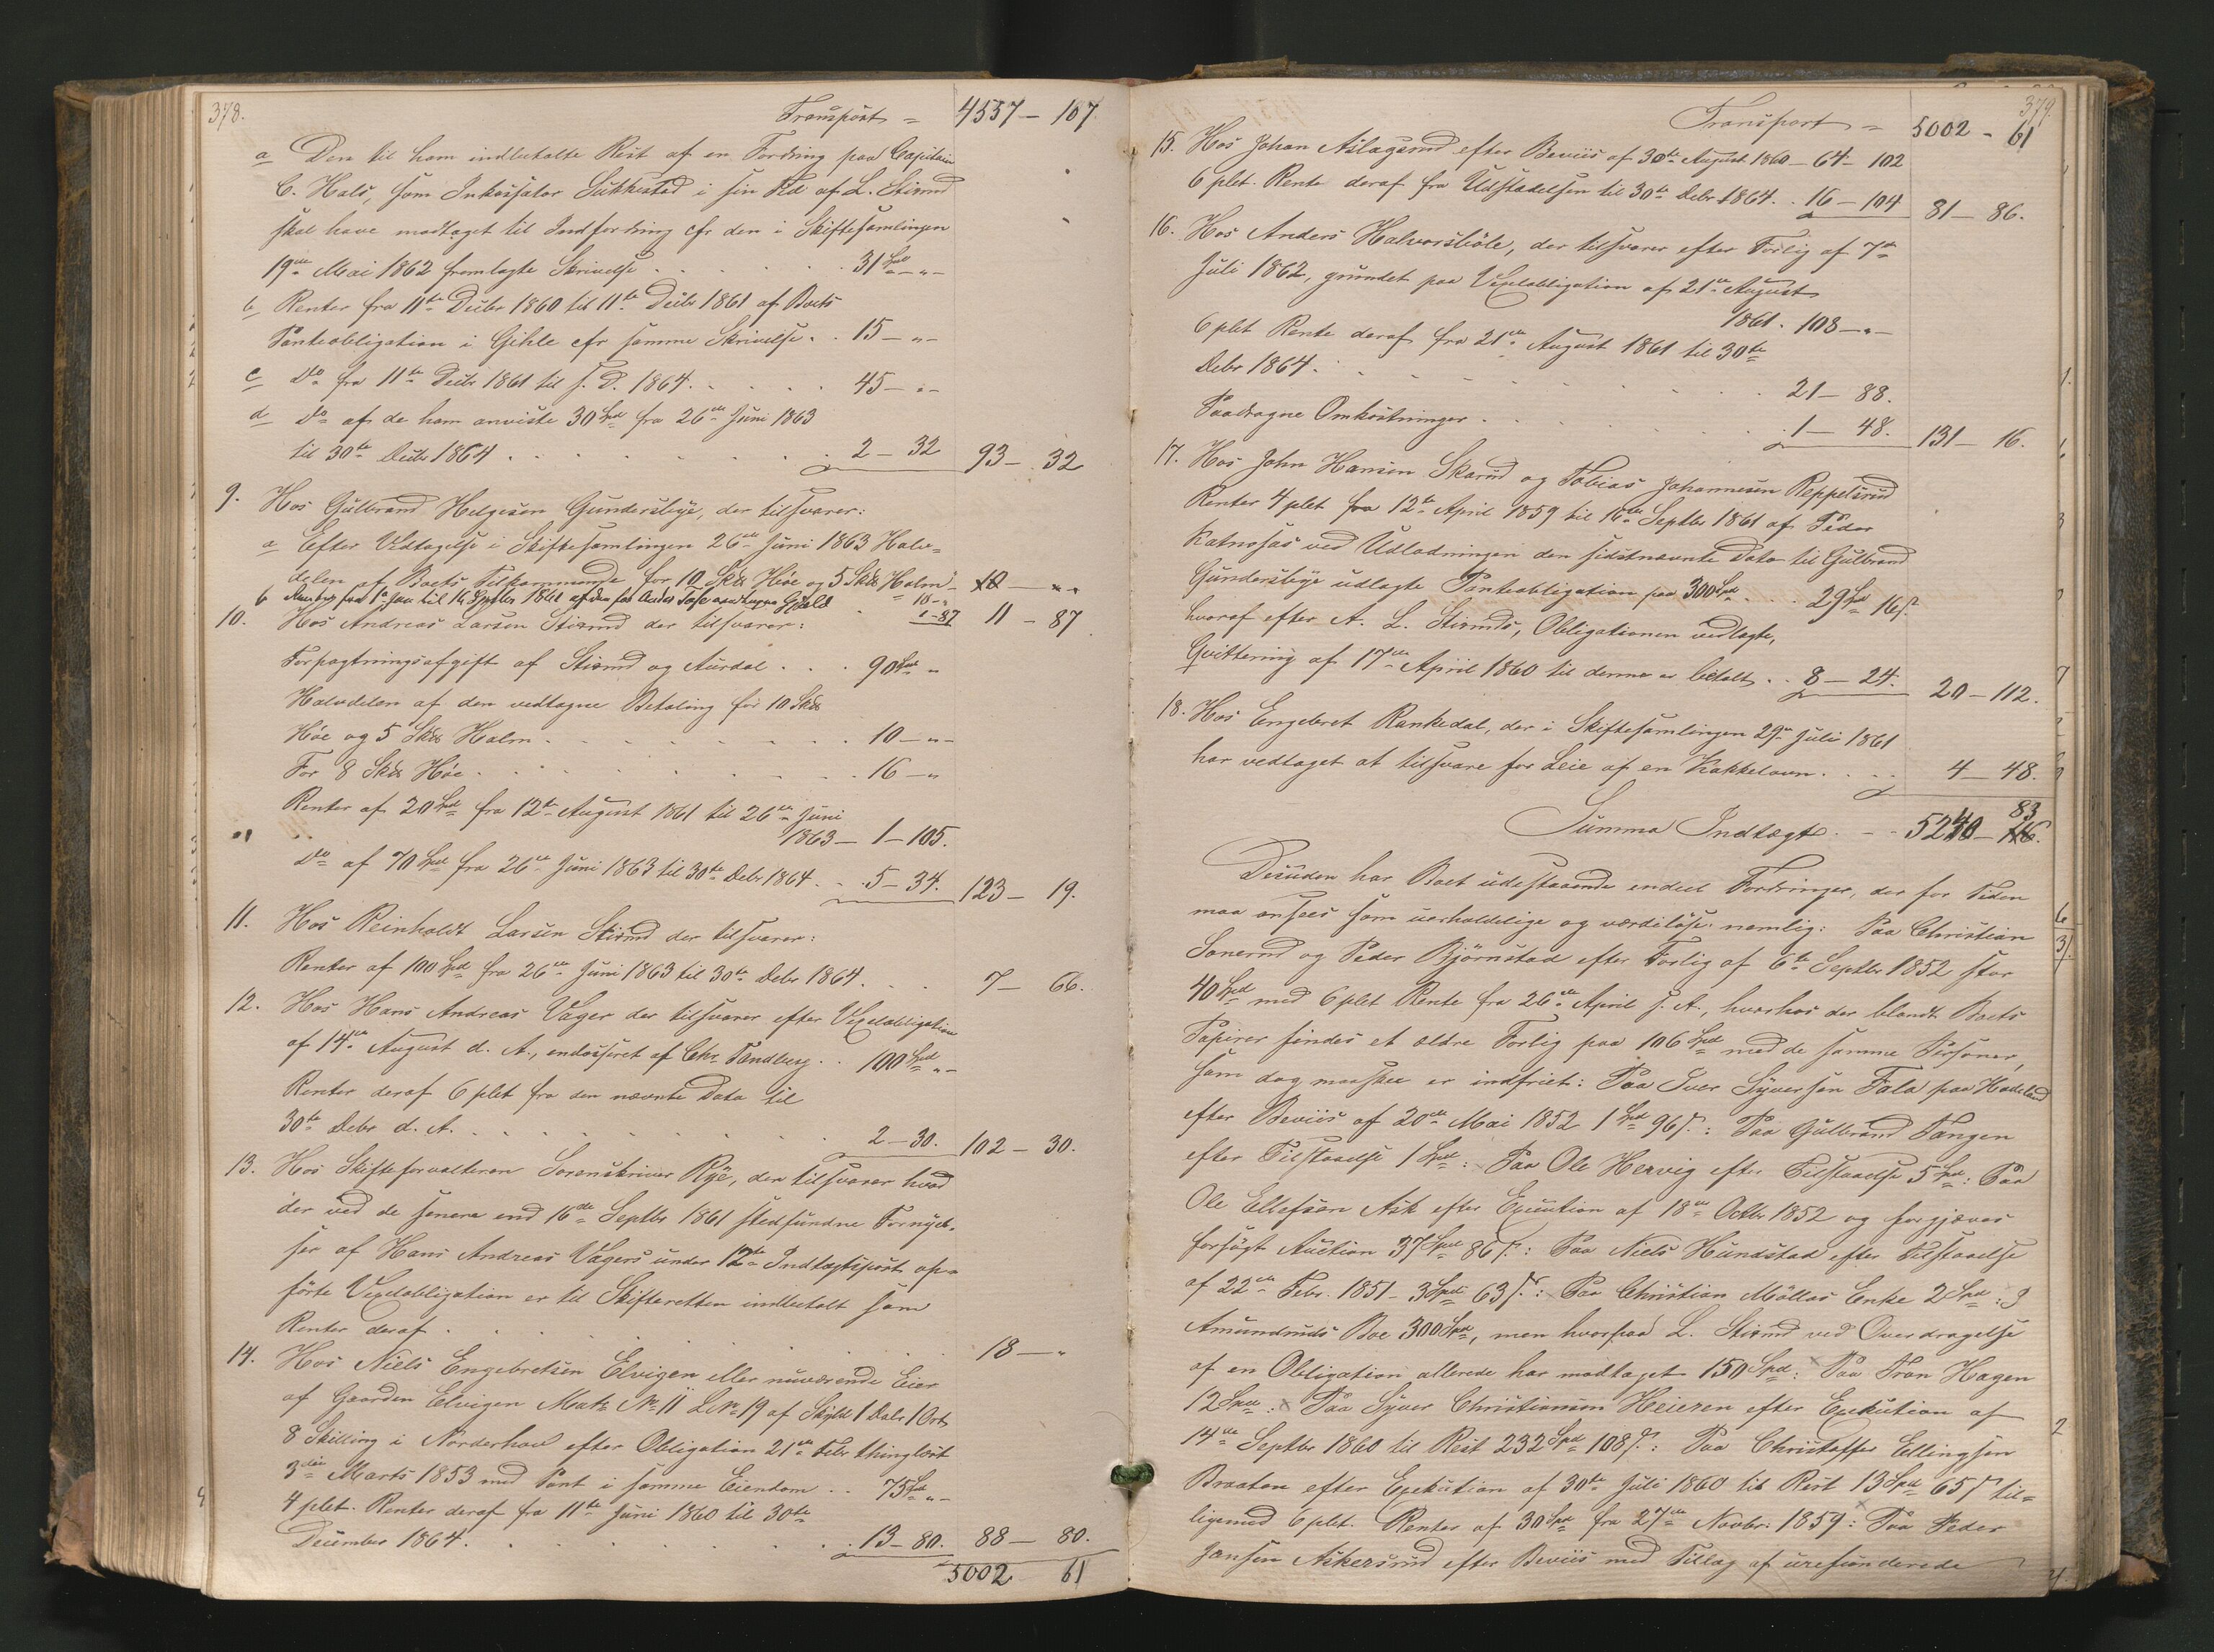 378.
Transport = 4557 – 107
a Den til ham indbetalte Rest af en Fordring paa Capitain
C. Hals, som Inkassator Sukkestad i sin Tid af L. Stixrud
skal have modtaget til Indfordring cfr den i Skiftesamlingen
19de Mai 1862 fremlagte Skrivelse . . . . . 31 Spd – " –
b Renter fra 11te Decbr 1860 til 11te Decbr 1861 af Boets
Panteobligation i Gihle cfr samme Skrivelse . . 15 – " –
c Do fra 11te Decbr 1861 til s. D. 1864 . . . . . 45 – " –
d Do af de ham anviste 30 Spd fra 26de Juni 1863
til 30te Decbr 1864 . . . . . . . . 2 – 32 93 – 32
9. Hos Gulbrand Helgesen Gundersbye, der tilsvarer:
a Efter Vedtagelse i Skiftesamlingen 26de Juni 1863 Halv=
delen af Boets Tilkommende for 10 Skd Høe og 5 Skd Halm – 10 – " "
b Renter fra 1ste Jan til 16 Septbr 1861 af den paa Gjæld 10 – " 1 – 87 11 – 87
10. Hos Andreas Larsen Stixrud der tilsvarer:
Forpagtningsafgift af Stixrud og Aurdal . . . 90 Spd "
Halvdelen af den vedtagne Betaling for 10 Skd
Høe og 5 Skd Halm . . . . . . . . 10 – " –
For 8 Skd Høe . . . . . . . . . . 16 – "
Renter af 20 Spd fra 12te August 1861 til 26de Juni
1863 – 1 – 105.
Do af 70 Spd fra 26de Juni 1863 til 30te Debr 1864 . . . 5 – 34. 123 – 19.
11. Hos Reinholdt Larsen Stixrud der tilsvarer:
Renter af 100 Spd fra 26de Juni 1863 til 30te Debr 1864 . . . 7 – 66.
12. Hos Hans Andreas Vager der tilsvarer efter Vexelobligation
af 14de August d. A., endosseret af Chr. Tandberg . . 100 Spd " –
Renter deraf 6 pCt fra den nævnte Dato til
30te Debr d. A. . . . . . . . . . 2 – 30. 102 – 30.
13. Hos Skifteforvalteren Sorenskriver Rye, der tilsvarer hvad
der ved de senere end 16de Septbr 1861 stedfundne Fornyel=
ser af Hans Andreas Vagers under 12te Indtægtspost op=
førte Vexelobligation er til Skifteretten indbetalt som
Renter deraf . . . . . . . . . . 18 – "
14. Hos Niels Engebretsen Elvigen eller nuværende Eier
af Gaarden Elvigen Matr No 11 LNo 19 af Skyld 1 Daler 1 Ort
8 Skilling i Norderhov efter Obligation 21de Febr thinglæst
3die Marts 1853 med Pant i samme Eiendom . . 75 Spd " –
4 pCt. Renter deraf fra 11te Juni 1860 til 30te
December 1864 . . . . . . . . . 13 – 80. 88 – 80.
5002 61
379.
Transport = 5002 – 61
15. Hos Johan Aslagsrud efter Beviis af 30te August 1860 – 64 – 102
6 pCt. Rente deraf fra Udstedelsen til 30te Debr 1864 . . 16 – 104 81 – 86.
16. Hos Anders Halvorsbøle, der tilsvarer efter Forlig af 7de
Juli 1862, grundet paa Vexelobligation af 21de August
1861 . 108 – " –
6 pCt Rente deraf fra 21de August 1861 til 30te
Debr 1864 . . . . . . . . . 21 – 88.
Paadragne Omkostninger . . . . . . . 1 – 48. 131 – 16.
17. Hos John Hansen Skarud og Tobias Johannesen Reppelsrud
Renter 4 pCt fra 12te April 1859 til 16de Septbr 1861 af Peder
Katnosas ved Udlodningen den sidstnævnte Dato til Gulbrand
Gundersbye udlagte Panteobligation paa 300 Spd . . . 29 Spd 16 s
hvoraf efter A. L. Stixruds, Obligationen vedlagte,
Qvittering af 17de April 1860 til denne er betalt . . 8 – 24. 20 – 112.
18. Hos Engebret Rankedal, der i Skiftesamlingen 29de Juli 1861
har vedtaget at tilsvare for Leie af en Kakkelovn . . . . 4 – 48.
Summa Indtægt . – – 5240 – 83
Desuden har Boet udestaaende endeel Fordringer, der for Tiden
maa ansees som uerholdelige og værdiløse nemlig: Paa Christian
Sonerud og Peder Bjørnstad efter Forlig af 6te Septbr 1852 stor
40 Spd med 6 pCt Rente fra 26de April s. A., hvorhos der blandt Boets
Papirer findes et ældre Forlig paa 106 Spd med de samme Personer,
som dog maaskee er indfriet: Paa Iver Syversen Fala paa Hadeland
efter Beviis af 20de Mai 1852 1 Spd 96 s.: Paa Gulbrand Tangen
efter Tilstaaelse 1 Spd: Paa Ole Hervig efter Tilstaaelse 5 Spd: Paa
Ole Ellefsen Ask efter Execution af 18de Octbr 1852 og forgjæves
forsøgt Auction 37 Spd 86 s.: Paa Niels Hundstad efter Tilstaaelse
af 22de Febr. 1851 – 3 Spd 63 s.: Paa Christian Möllers Enke 2 Spd: I
Amundruds Boe 300 Spd, men hvorpaa L. Stixrud ved Overdragelse
af en Obligation allerede har modtaget 150 Spd: Paa Tron Hagen
12 Spd: Paa Syver Christiansen Heieren efter Exekution af
14de Septbr 1860 til Rest 232 Spd 108 s.: Paa Christoffer Ellingsen
Braaten efter Exekution af 30te Juli 1860 til Rest 13 Spd 65 s til=
ligemed 6 pCt. Renter af 30 Spd fra 27de Novbr. 1859: Paa Peder
Jansen Askersrud efter Beviis med Tillæg af urefunderede